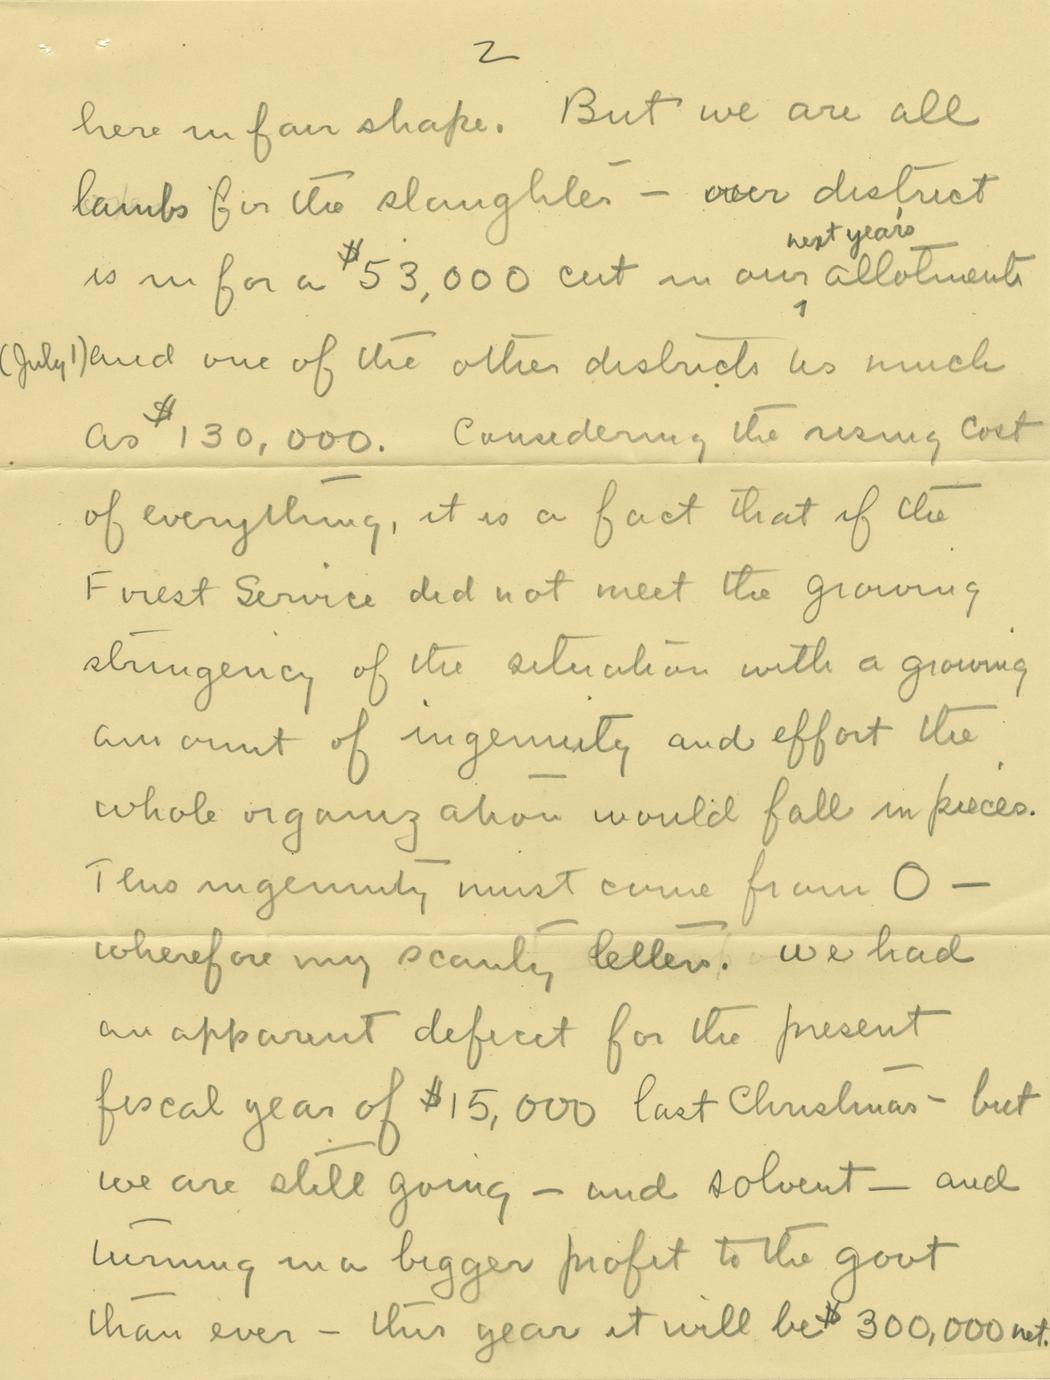 2
here in fair shape. But we are all
lambs for the slaughter – our district
next year's
is in for a $53,000 cut in our allotments
(July 1) and one of the other districts as much
as $130,000. Considering the rising cost
of everything, it is a fact that if the
Forest Service did not meet the growing
stringency of the situation with a growing
amount of ingenuity and effort the
whole organization would fall in pieces.
This ingenuity must come from O –
wherefore my scanty letters. We had
an apparent deficit for the present
fiscal year of $15,000 last Christmas – but
we are still going – and solvent – and
turning in a bigger profit to the govt
than ever – this year it will be $300,000 net.